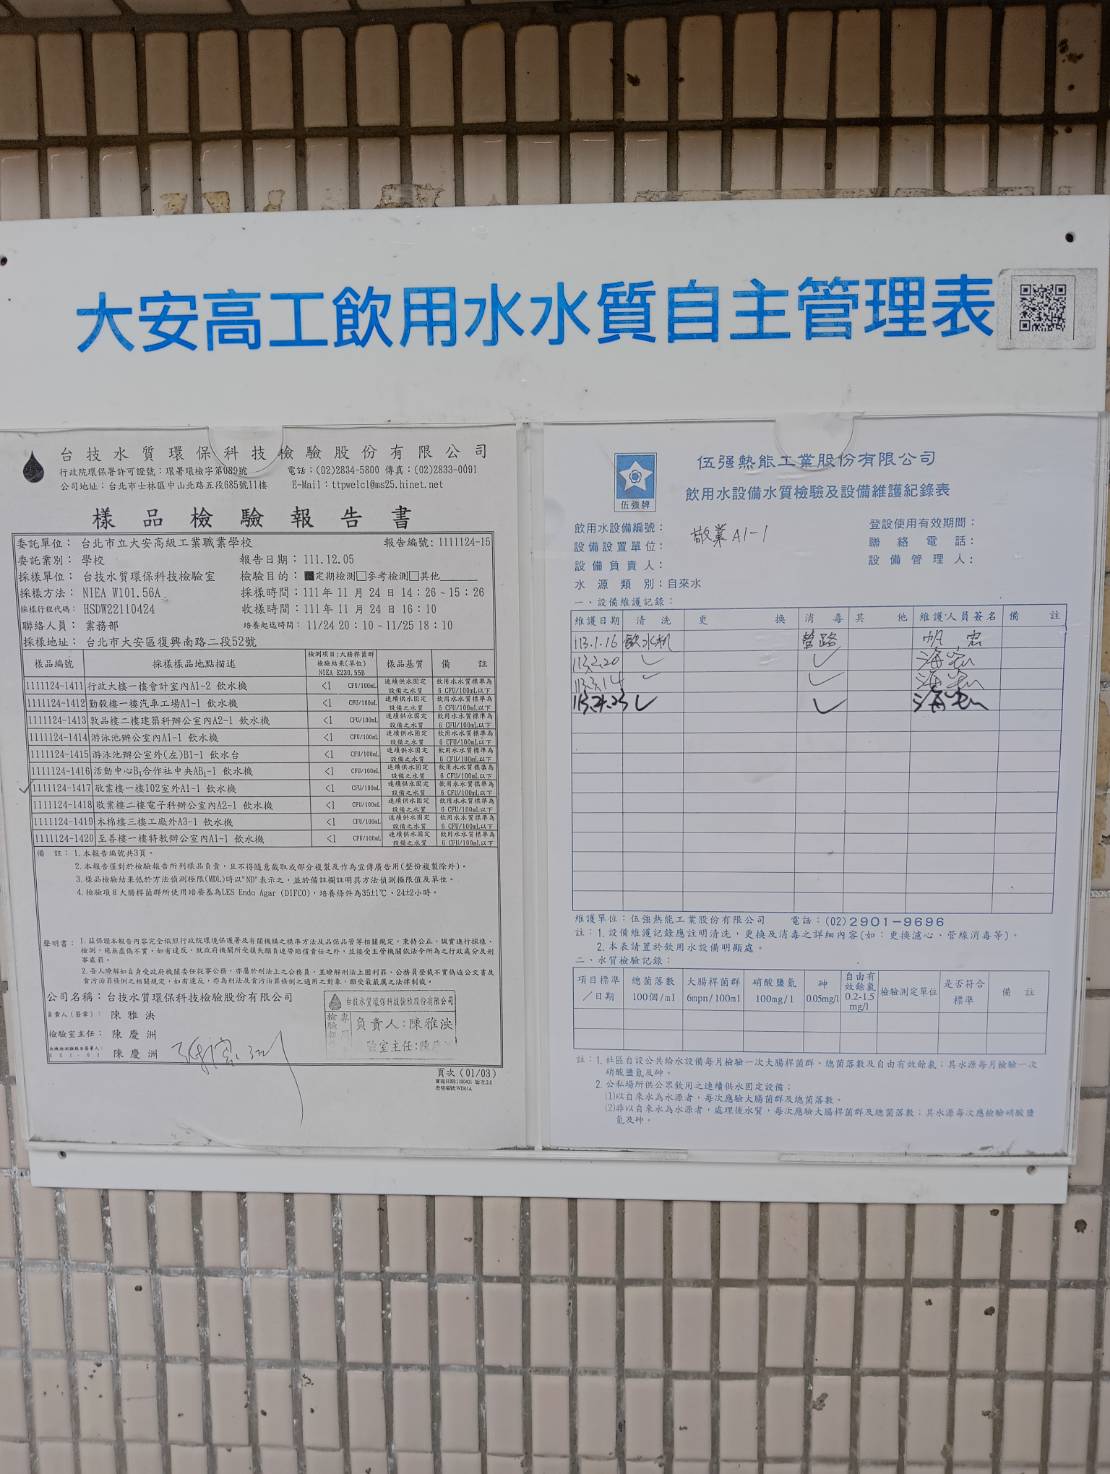 大安高工飲用水水質自主管理表
台技水質環保科技檢驗股份有限公司
行政院環保署許可證號：環署環檢字第089號 電話：(02)2834-5800 傳真：(02)2833-0091
公司地址：台北市士林區中山北路五段685號11樓 E-Mail：ttpwelcl@ms25.hinet.net
樣品檢驗報告書
委託單位：台北市立大安高級工業職業學校 報告編號：1111124-15
委託業別：學校 報告日期：111.12.05
採樣單位：台技水質環保科技檢驗室 檢驗目的：■定期檢測□參考檢測□其他
採樣方法：NIEA W101.56A 採樣時間：111年11月24日14:26~15:26
採樣行程代碼：HSDW22110424 收樣時間：111年11月24日16:10
聯絡人員：業務部 培養起迄時間：11/24 20:10~11/25 18:10
採樣地址：台北市大安區復興南路二段52號
樣品編號 採樣樣品地點描述 檢測項目：大腸桿菌群 檢驗結果(單位) NIEA E230.55B 樣品基質 備註
1111124-1411 行政大樓一樓會計室內A1-2 飲水機 <1 CFU/100mL 連續供水固定設備之水質 飲用水水質標準為6 CFU/100mL以下
1111124-1412 勤毅樓一樓汽車工場A1-1 飲水機 <1 CFU/100mL 連續供水固定設備之水質 飲用水水質標準為6 CFU/100mL以下
1111124-1413 敦品樓二樓建築科辦公室內A2-1 飲水機 <1 CFU/100mL 連續供水固定設備之水質 飲用水水質標準為6 CFU/100mL以下
1111124-1414 游泳池辦公室內A1-1 飲水機 <1 CFU/100mL 連續供水固定設備之水質 飲用水水質標準為6 CFU/100mL以下
1111124-1415 游泳池辦公室外(左)B1-1 飲水台 <1 CFU/100mL 連續供水固定設備之水質 飲用水水質標準為6 CFU/100mL以下
1111124-1416 活動中心B1合作社中央AB1-1 飲水機 <1 CFU/100mL 連續供水固定設備之水質 飲用水水質標準為6 CFU/100mL以下
1111124-1417 敬業樓一樓102室外A1-1 飲水機 <1 CFU/100mL 連續供水固定設備之水質 飲用水水質標準為6 CFU/100mL以下
1111124-1418 敬業樓二樓電子科辦公室內A2-1 飲水機 <1 CFU/100mL 連續供水固定設備之水質 飲用水水質標準為6 CFU/100mL以下
1111124-1419 木棉樓三樓工廠外A3-1 飲水機 <1 CFU/100mL 連續供水固定設備之水質 飲用水水質標準為6 CFU/100mL以下
1111124-1420 至善樓一樓特教辦公室內A1-1 飲水機 <1 CFU/100mL 連續供水固定設備之水質 飲用水水質標準為6 CFU/100mL以下
備註：1.本報告編號共3頁。
2.本報告僅對於檢驗報告所列樣品負責，且不得隨意截取或部分複製及作為宣傳廣告用(整份複製除外)。
3.樣品檢驗結果低於方法偵測極限(MDL)時以"ND"表示之，並於備註欄註明其方法偵測極限值及單位。
4.檢驗項目大腸桿菌群所使用培養基為LES Endo Agar (DIFCO)，培養條件為35±1℃、24±2小時。
聲明書：1.茲保證本報告內容完全依照行政院環境保護署及有關機構之標準方法及品保品管等相關規定，秉持公正、誠實進行採樣、
檢測，絕無虛偽不實，如有違反，就政府機關所受損失願負連帶賠償責任之外，並接受主管機關依法令所為之行政處分及刑
事處罰。
2.吾人瞭解如自身受政府機關委任從事公務，亦屬於刑法上之公務員，並瞭解刑法上圖利罪、公務員登載不實偽造公文書及
貪污治罪條例之相關規定，如有違反，亦為刑法及貪污治罪條例之適用之對象，願受最嚴厲之法律制裁。
公司名稱：台技水質環保科技檢驗股份有限公司
負責人(簽章)：陳雅泱
檢驗室主任：陳慶洲
陳慶洲
台技水質環保科技檢驗股份有限公司
負責人：陳雅泱
驗室主任：陳
頁次(01/03)
伍強牌
伍强熱能工業股份有限公司
飲用水設備水質檢驗及設備維護紀錄表
飲用水設備編號：敬業A1-1 登設使用有效期間：
設備設置單位： 聯絡電話：
設備負責人： 設備管理人：
水源類別：自來水
一、設備維護記錄：
維護日期 清洗 更換 消毒 其他 維護人員簽名 備註
113.1.16 飲水机 管路
113.2.20 ✓ ✓
113.3.14 ✓ ✓
113.4.23 ✓ ✓
維護單位：伍強熱能工業股份有限公司 電話：(02)2901-9696
註：1.設備維護記錄應註明清洗，更換及消毒之詳細內容(如：更換濾心、管線消毒等)。
2.本表請置於飲用水設備明顯處。
二、水質檢驗記錄：
項目標準／日期 總菌落數100個/ml 大腸桿菌群6mpn/100ml 硝酸鹽氮100mg/l 砷0.05mg/l 自由有效餘氯0.2-1.5mg/l 檢驗測定單位 是否符合標準 備註
註：1.社區自設公共給水設備每月檢驗一次大腸桿菌群、總菌落數及自由有效餘氯；其水源每月檢驗一次
硝酸鹽氮及砷。
2.公私場所供公眾飲用之連續供水固定設備：
(1)以自來水為水源者，每次應驗大腸菌群及總菌落數。
(2)非以自來水為水源者，處理後水質，每次應驗大腸桿菌群及總菌落數；其水源每次應檢驗硝酸鹽
氮及砷。